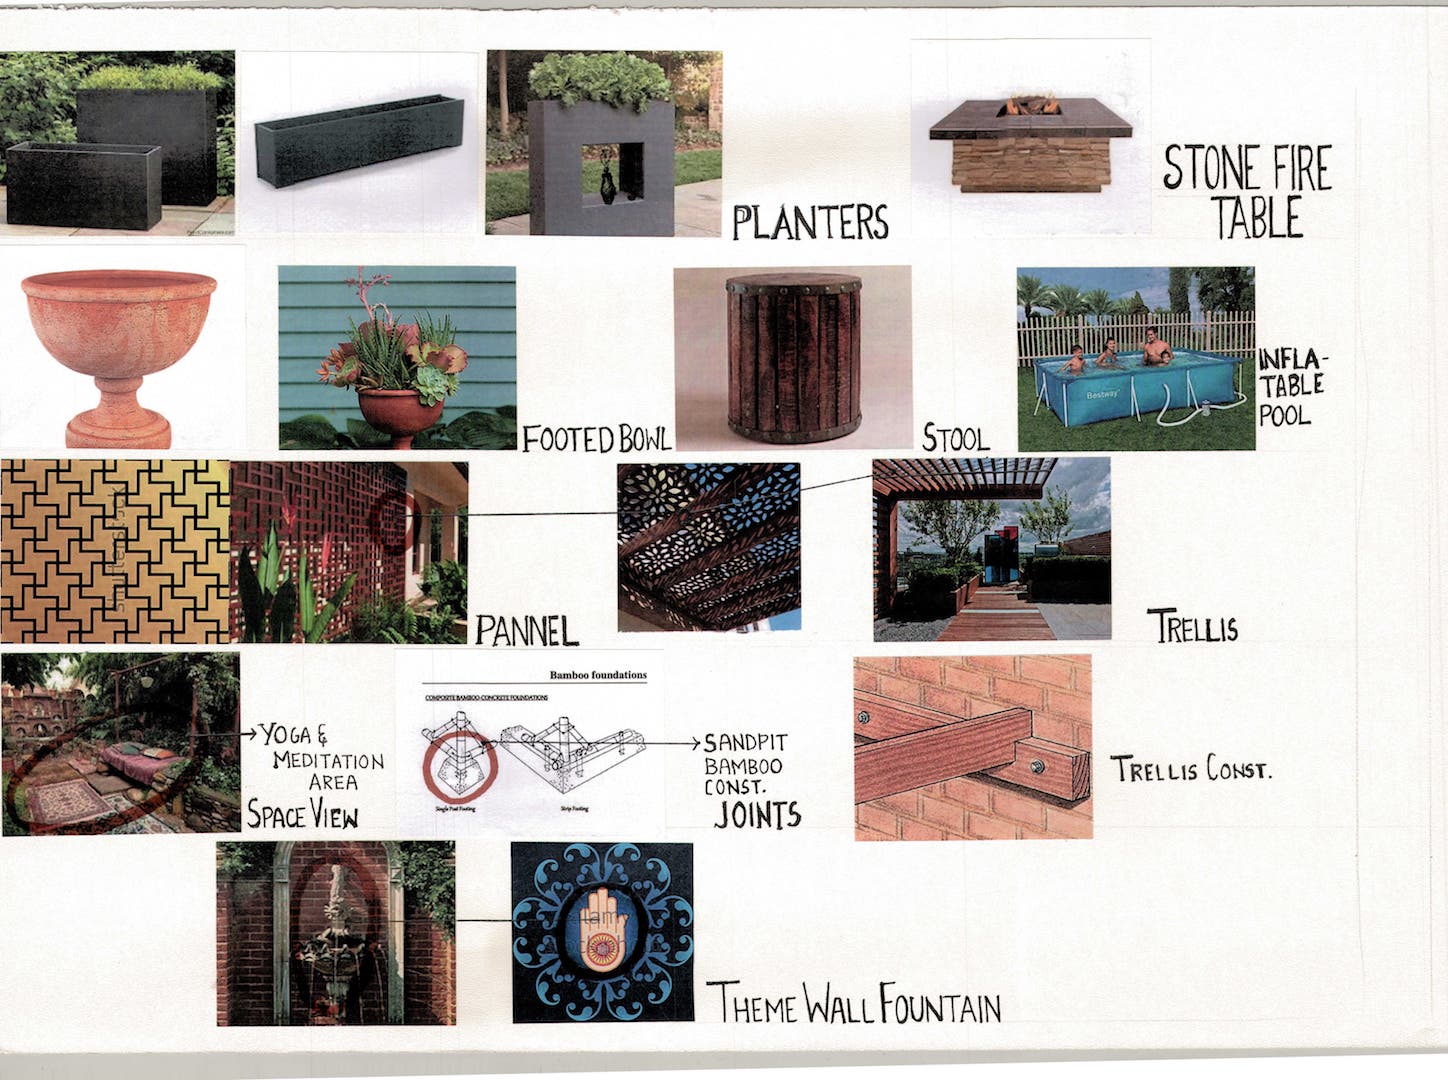 PLANTERS
STONE FIRE
TABLE
FOOTED BOWL
STOOL
Bestway
INFLA-
TABLE
POOL
shutterstock
PANNEL
TRELLIS
YOGA &
MEDITATION
AREA
SPACE VIEW
Bamboo foundations
COMPOSITE BAMBOO-CONCRETE FOUNDATIONS
Single Post Footing
Strip Footing
SANDPIT
BAMBOO
CONST.
JOINTS
TRELLIS CONST.
alamy
THEME WALL FOUNTAIN